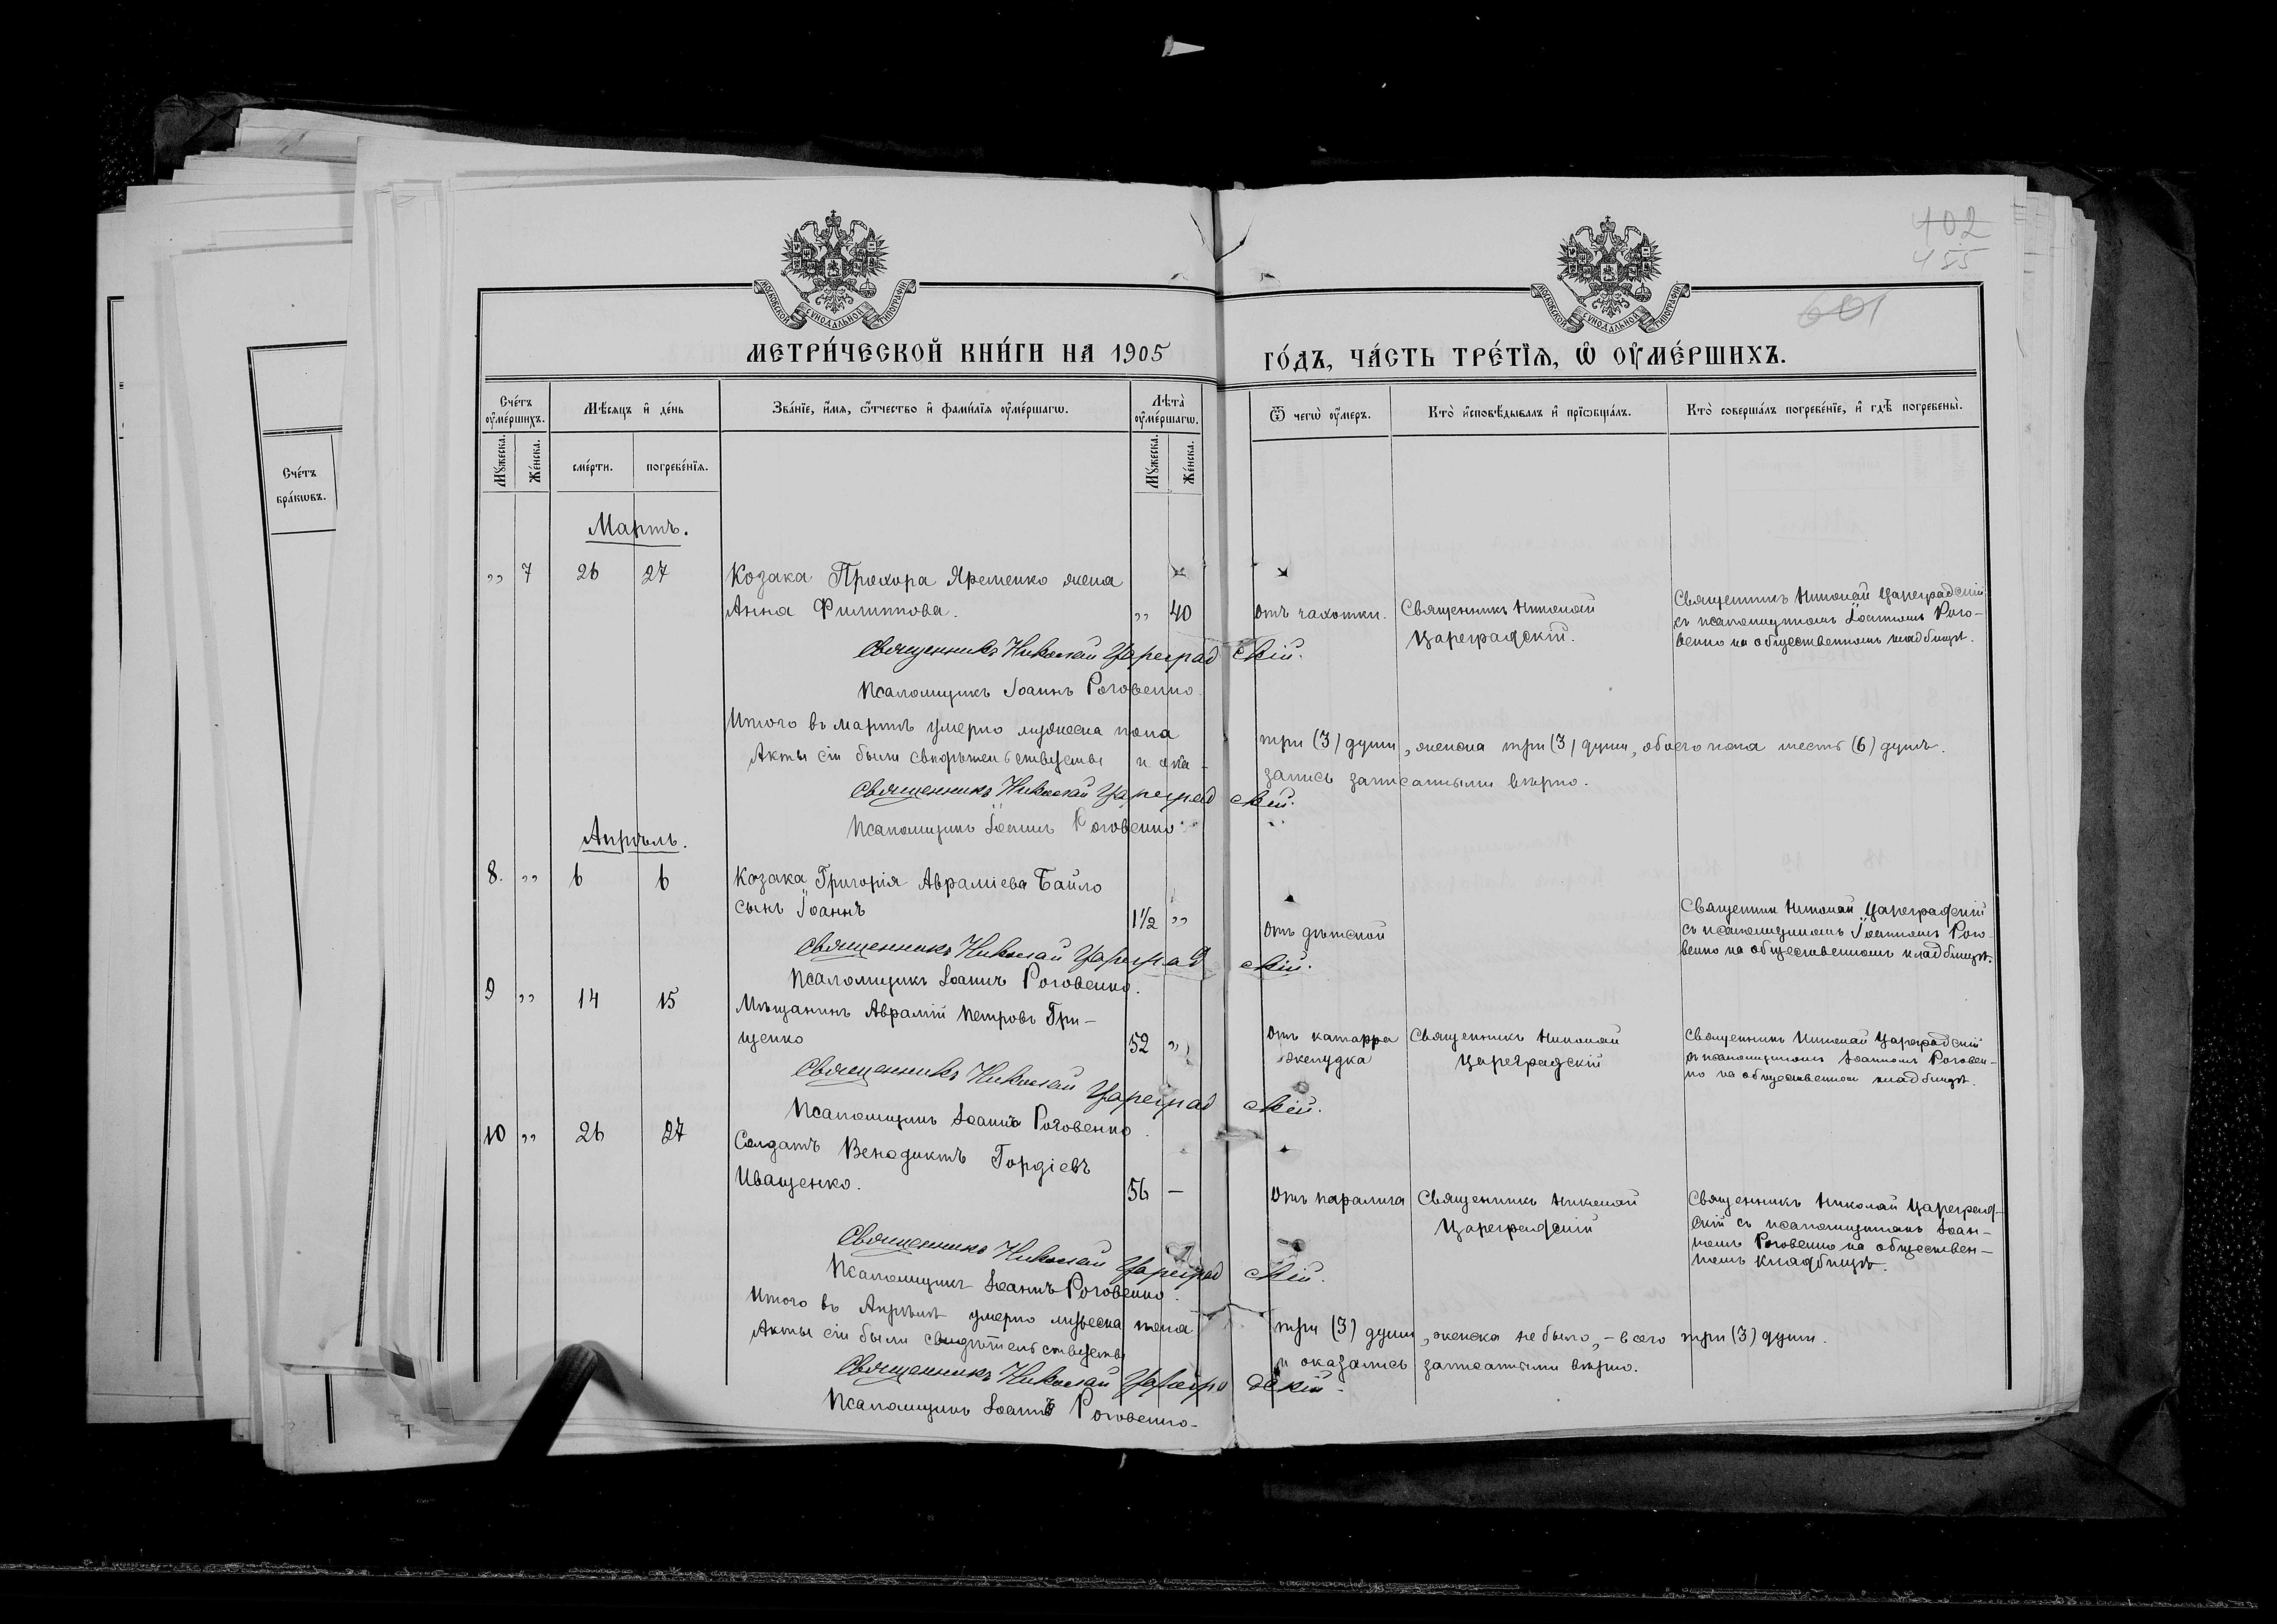 402
455
601
МОСКОВСКОЙ СѴНОДАЛЬНОЙ ТИПОГРАФІИ
МОСКОВСКОЙ СѴНОДАЛЬНОЙ ТИПОГРАФІИ
МЕТРИ́ЧЕСКОЙ КНИ́ГИ НА 1905 ГО́ДЪ, ЧА́СТЬ ТРЕ́ТЇѦ, Ѽ ОУ҆МЕ́РШИХЪ.
Сче́тъ оу҆ме́ршихъ.
Мѣ́сяцъ и҆ де́нь
Зва́нїе, и҆́мѧ, ѻ҆́тчество и҆ фами́лїѧ оу҆ме́ршагѡ.
Лѣ́та оу҆ме́ршагѡ.
Ѿ чегѡ̀ оу҆́меръ.
Кто̀ и҆сповѣ́дывалъ и҆ прїѡбща́лъ.
Кто̀ соверша́лъ погребе́нїе, и҆ гдѣ̀ погребены̀.
Мꙋ́жеска.
Же́нска.
сме́рти.
погребе́нїѧ.
Мꙋ́жеска.
Же́нска.
Сче́тъ
бра́кѡвъ.
Мартъ.
" 7 26 27 Козака Прохора Яременко жена
Анна Филиппова. " 40 Отъ чахотки. Священникъ Николай
Цареградскій.
Священникъ Николай Цареградскій
съ псаломщикомъ Іоанномъ Рого-
венко на общественномъ кладбищѣ.
Священникъ Николай Цареградскій.
Псаломщикъ Іоаннъ Роговенко.
Итого въ мартѣ умерло мужеска пола три (3) души, женска три (3) души, обоего пола шесть (6) душъ.
Акты сіи были свидѣтельствуемы и ока-
зались записанными вѣрно.
Священникъ Николай Цареградскій.
Псаломщикъ Іоаннъ Роговенко.
Апрѣль.
8. " 6 6 Козака Григорія Авраміева Байло
сынъ Іоаннъ 1½ " Отъ дѣтской
Священникъ Николай Цареградскій
съ псаломщикомъ Іоанномъ Рого-
венко на общественномъ кладбищѣ.
Священникъ Николай Цареградскій.
Псаломщикъ Іоаннъ Роговенко.
9 " 14 15 Мѣщанинъ Аврамій Петровъ Гри-
щенко 52 " Отъ катарра
желудка
Священникъ Николай
Цареградскій
Священникъ Николай Цареградскій
съ псаломщикомъ Іоанномъ Роговен-
ко на общественномъ кладбищѣ.
Священникъ Николай Цареградскій.
Псаломщикъ Іоаннъ Роговенко.
10 " 26 27 Солдатъ Венедиктъ Гордіевъ
Иващенко. 56 — Отъ паралича Священникъ Николай
Цареградскій
Священникъ Николай Цареград-
скій съ псаломщикомъ Іоан-
номъ Роговенко на обществен-
номъ кладбищѣ.
Священникъ Николай Цареградскій.
Псаломщикъ Іоаннъ Роговенко.
Итого въ Апрѣлѣ умерло мужеска пола три (3) души, женска не было, - всего три (3) души.
Акты сіи были свидѣтельствуемы и оказались записанными вѣрно.
Священникъ Николай Цареградскій.
Псаломщикъ Іоаннъ Роговенко.